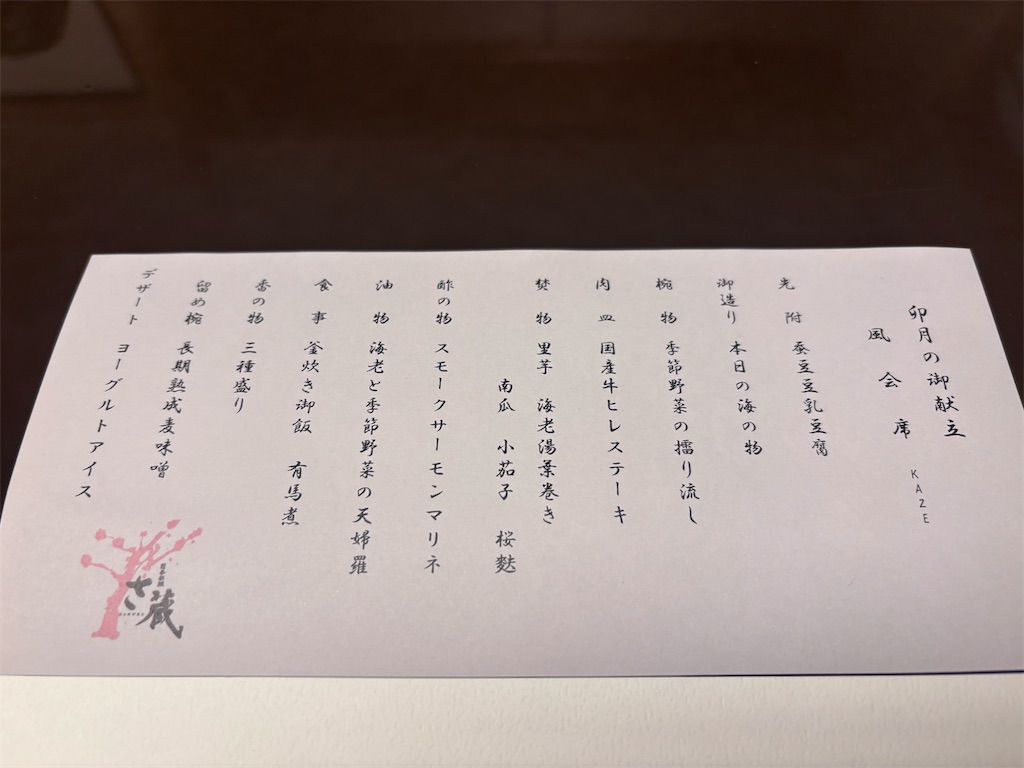 卯月の御献立
風会席 KAZE
先附 蚕豆豆乳豆腐
御造り 本日の海の物
椀物 季節野菜の擂り流し
肉皿 国産牛ヒレステーキ
焚物 里芋 海老湯葉巻き
南瓜 小茄子 桜麩
酢の物 スモークサーモンマリネ
油物 海老と季節野菜の天婦羅
食事 釜炊き御飯 有馬煮
香の物 三種盛り
留め椀 長期熟成麦味噌
デザート ヨーグルトアイス
日本料理
さくら
蔵